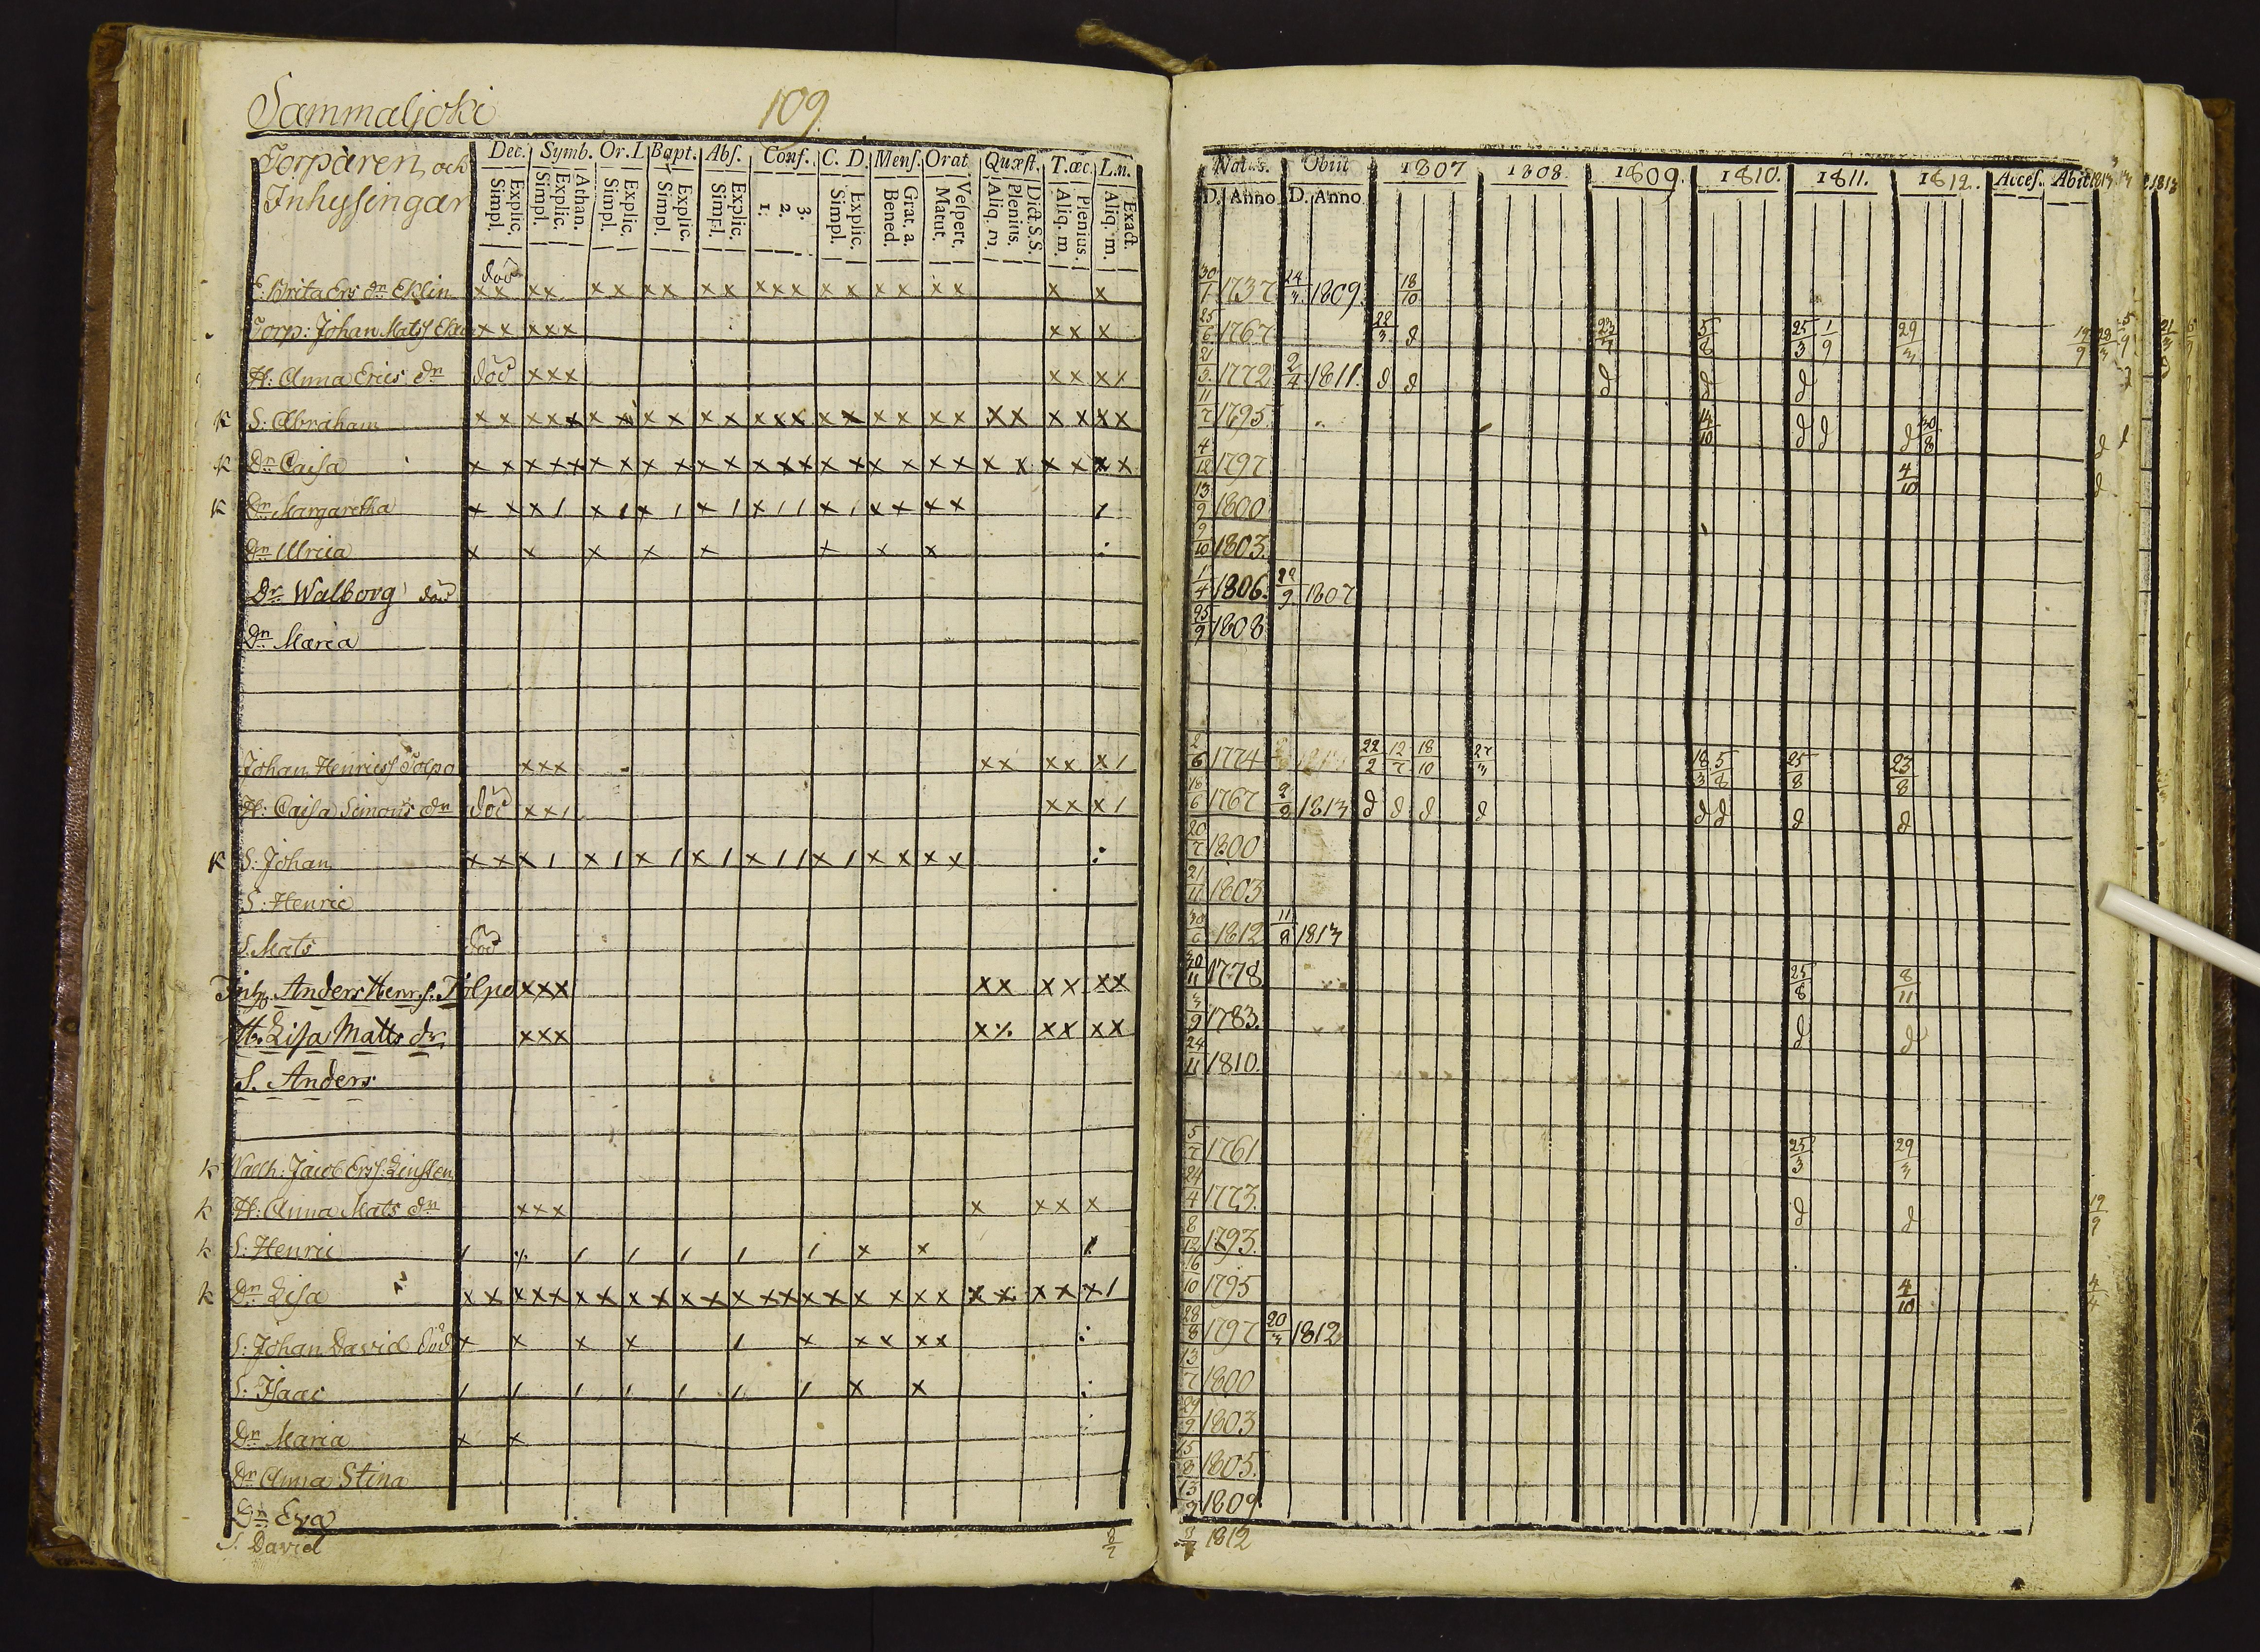 Sammaljoki 109.
Torparen och Inhysingar
Dec. Symb. Or. L Bapt. Abſ. Conf. C. D. Menſ. Orat. Quæſt. T. œc. L. n.
Simpl. Explic. Simpl. Explic. Athan. Simpl. Explic. Simpl. Explic. Simpl. Explic. 1. 2. 3. Simpl. Explic. Bened. Grat. a. Matut. Veſpert. Aliq. m. Plenius. Dict. S.S. Aliq. m. Plenius. Aliq. m. Exact.
Natus. Obiit 1807 1808 1809. 1810. 1811. 1812. Acceſ. Abit. 1813
D. Anno D. Anno
E: Brita Ers dr Eklin död xx xx xx xx xx xxx xx xx xx x x 30/1 1737 24/3 1809. 18/10
Torp: Johan Matsſ xx xxx xx x 25/6 1767 22/3 d 5/8 25/3 1/9 29/3
H: Anna Erics dr död xxx xx xx 21/3 1772 2/4 1811. d d d d d
K S: Abraham xx xxx xx xx xx xxx xx xx xx xx xx xx 11/7 1795. 14/10 d d d 30/8
K Dr Caisa xx xxx xx xx xx xxx xx xx xx xx xx xx 4/12 1797 4/10
K Dr Margaretha xx x1 x1 x1 x1 x11 x1 xx xx 1 13/9 1800
Dr Ulrica x x x x x x x x : 9/10 1803.
Dr Walborg död 1/4 1806. 29/9 1807
Dr Maria 25/9 1808
Johan Henricsſ Tolpo xxx xx xx x1 2/6 1774 22/2 12/7 18/10 27/3 18/3 5/8 25/8 23/8
H: Caisa Simons dr död xx1 xx x1 18/6 1767 2/9 1813 d d d d d d d d
K S: Johan xx x1 x1 x1 x1 x11 x1 xx xx : 20/7 1800
S: Henric 21/11 1803
S. Mats död 30/6 1812 11/9 1813
Inhy. Anders Henr.ſ. Tolpo xxx xx xx xx 30/11 1778. 25/8 8/11
H. Lisa Matts dr. xxx x% xx xx 3/9 1783. d d
S. Anders 24/11 1810.
K Jacob Ersſ. 5/7 1761 25/3 29/3
K H: Anna Mats dr xxx x xxx x 24/4 1773. d d 19/9
K S: Henric 1 % 1 1 1 1 1 x x 1 8/12 1793.
K Dr Lisa xx xxx xx xx xx xxx xx x xxx xx xx x1 16/10 1795 4/10 4/4
S: Johan David död x x x x 1 x xx xx : 28/8 1797 20/3 1812
S. Isaac 1 1 1 1 1 1 1 x x : 13/7 1800
Dr Maria x x 29/9 1803
Dr Anna Stina 15/8 1805.
Dr Eva 13/9 1809
S. David 1812